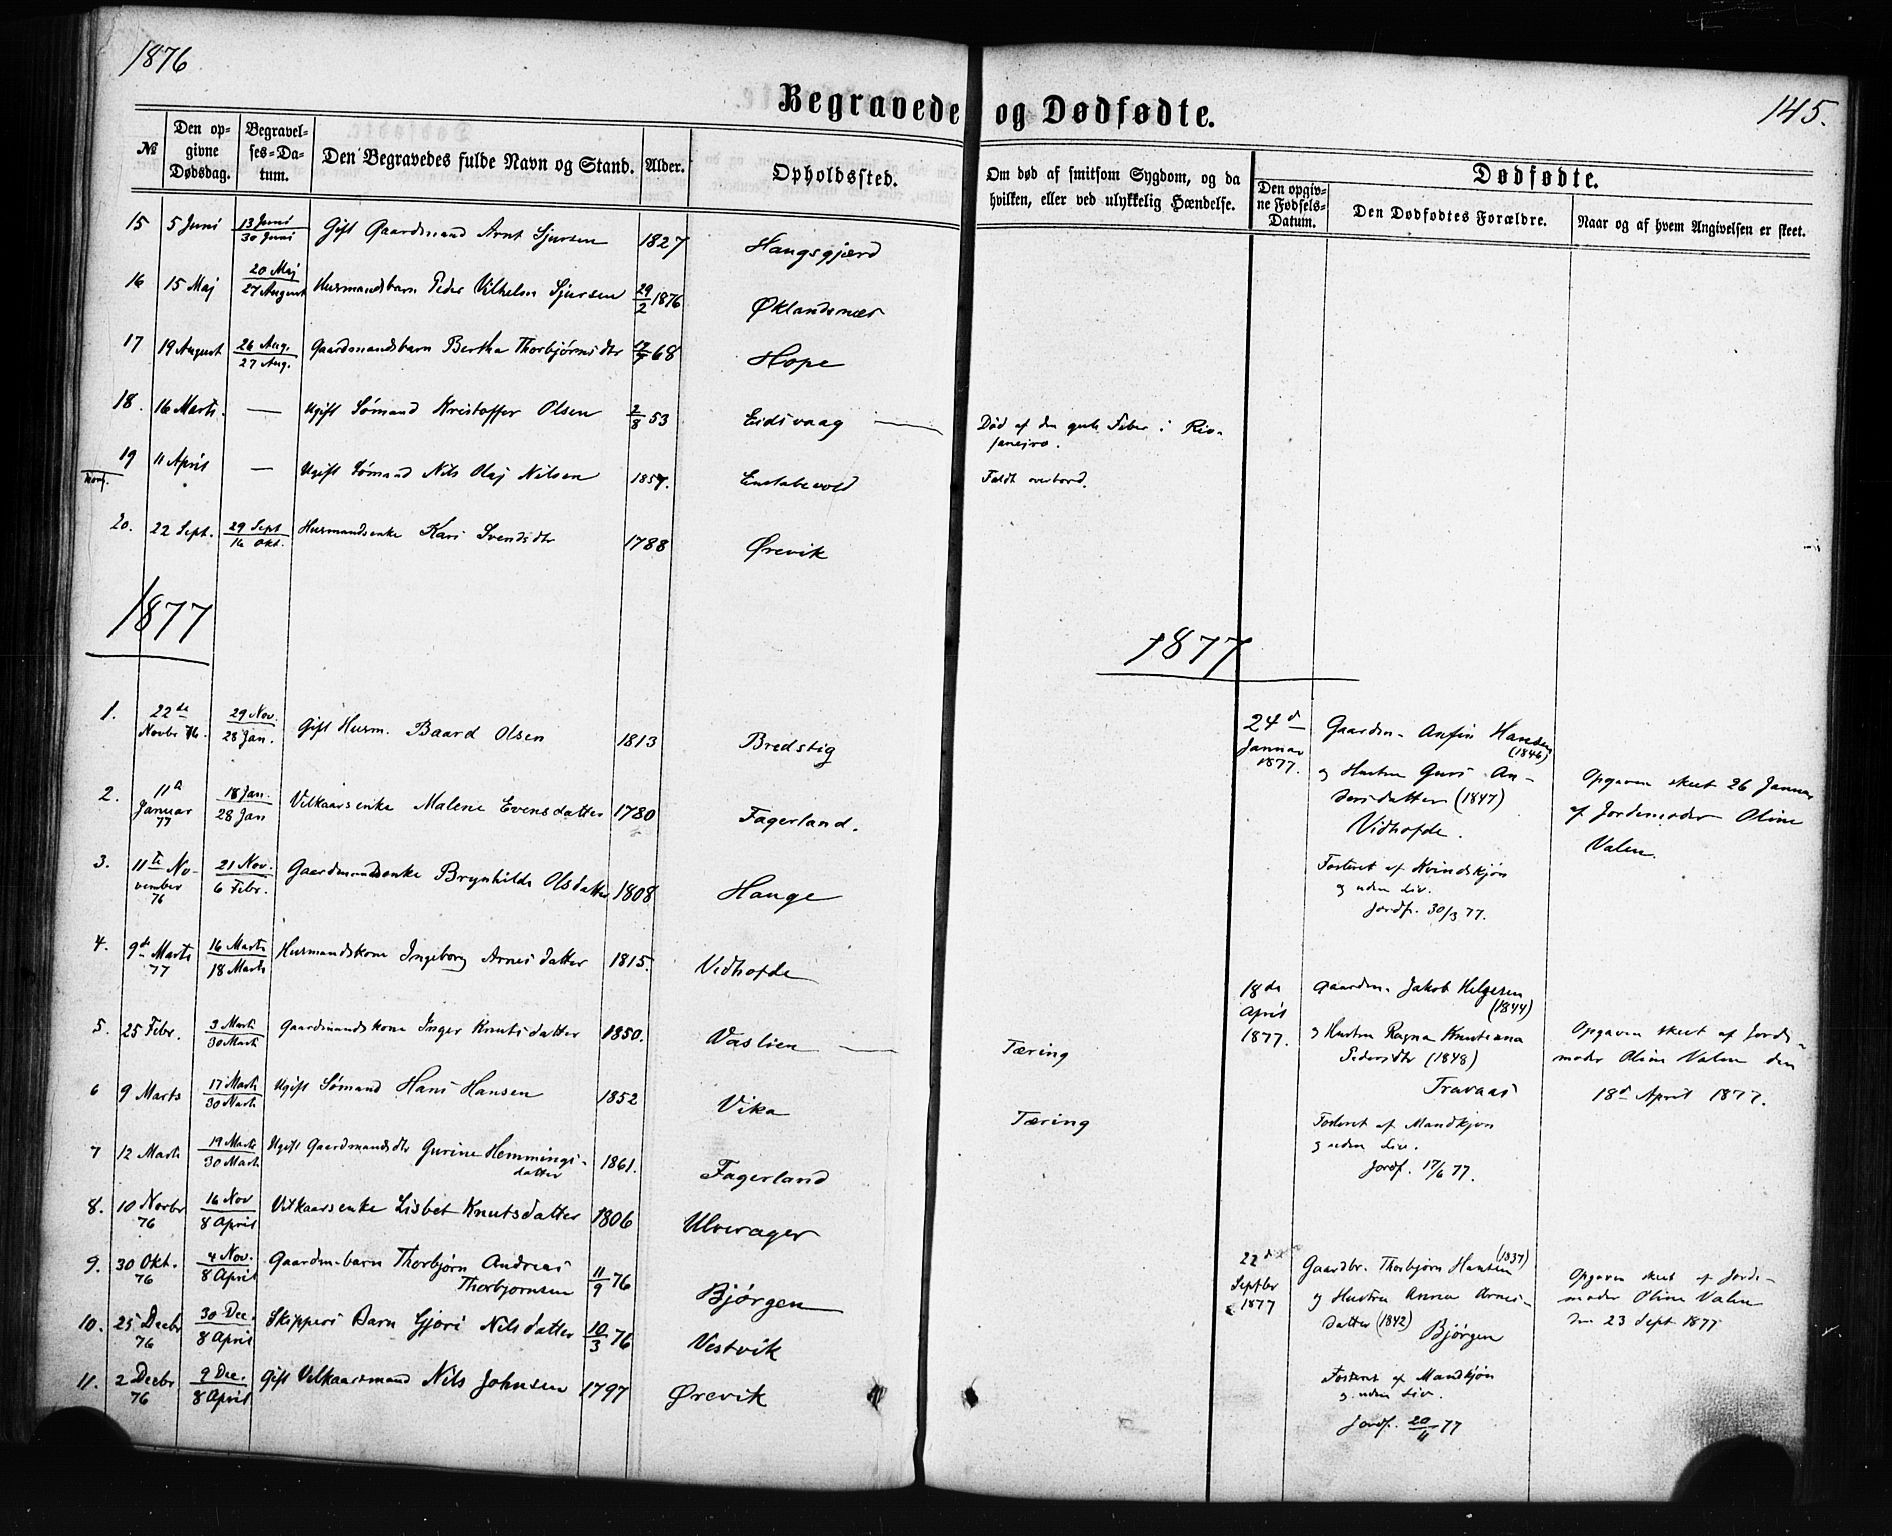 1876
Begravede og Dødfødte.
145.
№ | Den opgivne Dødsdag. | Begravelses-Datum. | Den Begravedes fulde Navn og Stand. | Alder. | Opholdssted. | Om død af smitsom Sygdom, og da hvilken, eller ved ulykkelig Hændelse. | Dødfødte. | Den opgivne Fødsels-Datum. | Den Dødfødtes Forældre. | Naar og af hvem Angivelsen er skeet.
15 | 5 Juni | 13 Juni / 30 Juni | Gift Gaardmand Arnt Sjursen | 1827 | Haugsgjerd
16 | 15 Maj | 20 Maj / 27 August | Husmandsbarn Peder Vilhelm Sjursen | 29/2 1876 | Øklandsnær
17 | 19 August | 26 Aug. / 27 Aug. | Gaardmandsbarn Bertha Thorbjørnsdtr | 68 | Hope
18. | 16 Marts. | — | Ugift Sømand Kristoffer Olsen | 2/8 53 | Eidsvaag — | Død af den gule Feber i Rio-
janejro.
19 | 11 April | — | Ugift Sømand Nils Olaj Nilsen | 1857. | Enstabevold | Faldt overbord.
20. | 22 Sept. | 29 Sept / 16 Okt. | Husmandsenke Kari Svendsdtr | 1788 | Ørevik
1877
1. | 22de Novbr 76. | 29 Nov. / 28 Jan. | Gift Husm. Baard Olsen | 1813 | Bredstig
2. | 11te Januar 77 | 18 Jan. / 28 Jan | Vilkaarsenke Malene Evensdatter | 1780 | Fagerland.
3. | 11te November 76 | 21 Nov. / 6 Febr. | Gaardmandsenke Brynhilde Olsdatter | 1808 | Hauge
4. | 9de Marts 77 | 16 Marts / 18 Marts | Husmandskone Ingeborg Arnesdatter | 1815. | Vidhofde
5. | 25 Febr. | 3 Marts / 30 Marts | Gaardmandskone Inger Knutsdatter | 1850. | Vaslien — | Tæring
6 | 9 Marts | 17 Marts / 30 Marts | Ugift Sømand Hans Hansen | 1852 | Vika | Tæring
7 | 12 Marts | 19 Marts / 30 Marts | Ugift Gaardmandsdtr Gurine Hemmings-
datter | 1861. | Fagerland
8. | 10 Novbr 76 | 16 Nov / 8 April | Vilkaarsenke Lisbet Knutsdatter | 1806 | Ulverager
9. | 30 Okt. 76 | 4 Nov. / 8 April | Gaardm-barn Thorbjørn Andreas
Thorbjørnsen | 11/9 76 | Bjørgen
10. | 25 Decbr 76 | 30 Dec. / 8 April | Skippers Barn Gjøri Nilsdatter | 10/3 76 | Vestvik
11. | 2 Decbr 76 | 9 Dec. / 8 April | Gift Vilkaarsmand Nils Johnsen | 1797 | Ørevik
1877
24d
Januar
1877.
Gaardm. Anfin Hansen
(1846)
og Hustru Guri An-
dersdatter (1847)
Vidhofde.
Fosteret af Kvindekjøn
og uden Liv.
Jordf. 30/3 77.
Opgaven skeet 26 Januar
af Jordemoder Oline
Valen.
18de
April
1877.
Gaardm. Jakob Helgesen
(1844)
og Hustru Ragna Knutiana
Pedersdtr (1848)
Travaas
Fosteret af Mandkjøn
og uden Liv.
Jordf. 17/6 77.
Opgaven skeet af Jorde-
moder Oline Valen den
18d April 1877.
22d
Septbr
1877
Gaardbr. Thorbjørn Hansen (1837)
og Hustru Anna Arnes-
datter (1842)
Bjørgen
Fosteret af Mandkjøn
og uden Liv.
Jordf. 20/11 77
Opgaven skeet af Jorde-
moder Oline Valen
den 23 Sept 1877